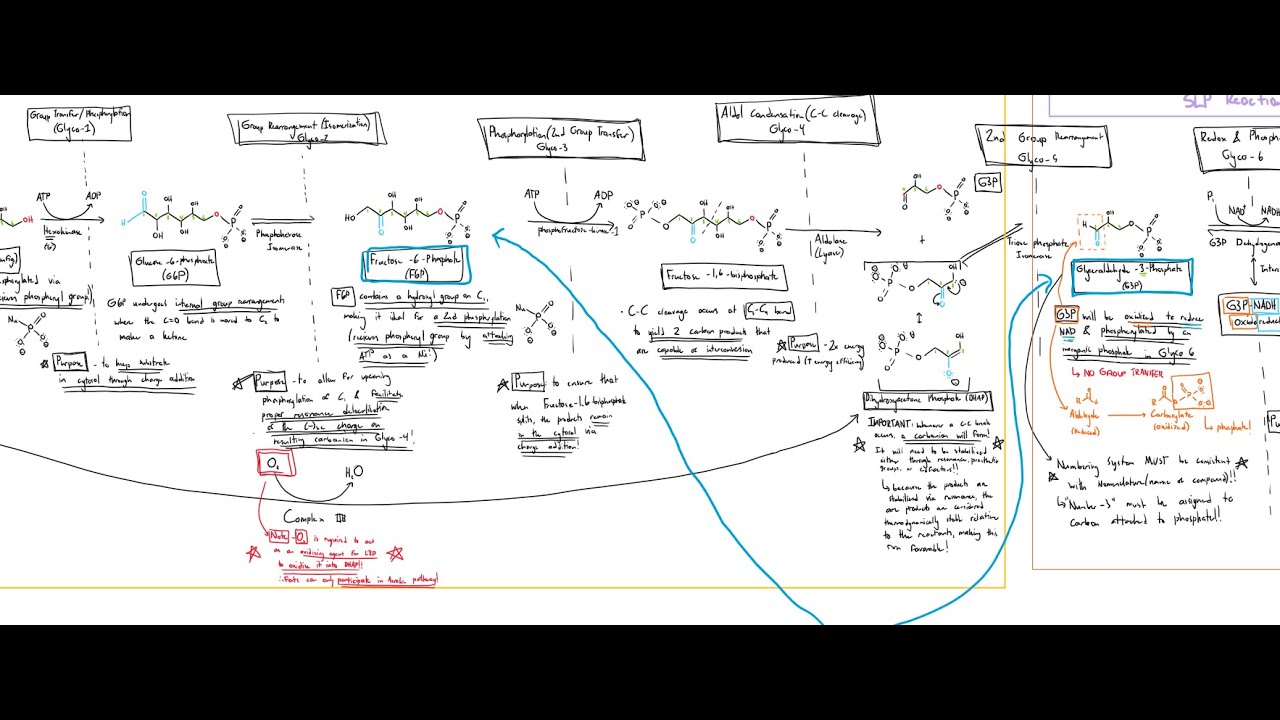 SLP Reaction
Group Transfer/Phosphorylation
(Glyco-1)
ATP
ADP
Hexokinase
OH
Group Rearrangement (Isomerization)
Glyco-2
Glucose-6-phosphate
(G6P)
G6P undergoes internal group rearrangement
where the C=O bond is moved to C2 to
make a ketone
Purpose - to trap substrate
in cytosol through charge addition
Isomerase
Fructose-6-Phosphate
(F6P)
F6P contains a hydroxyl group on C1,
making it ideal for a 2nd phosphorylation
(recieves phosphoryl group by attacking
ATP as a Nu:)
Purpose - to allow for upcoming
phosphorylation of C1 & facilitate
proper resonance delocalization
of the (-)ve charge on
resulting carbanion in Glyco-4!
Phosphorylation (2nd Group Transfer)
Glyco-3
ATP
ADP
phosphofructose-kinase-1
Purpose: to ensure that
when Fructose-1,6-bisphosphate
splits, the products remain
in the cytosol via
charge addition!
Aldol Condensation (C-C cleavage)
Glyco-4
Fructose-1,6-bisphosphate
Aldolase
(Lyase)
• C-C cleavage occurs at C3-C4 bond
to yield 2 carbon products that
are capable of interconversion
Purpose - 2x energy
produced (↑ energy efficiency)
G3P
+
Dihydroxyacetone Phosphate (DHAP)
IMPORTANT: Whenever a C-C break
occurs, a carbanion will form!
It will need to be stabilized
either through resonance, prosthetic
groups, or cofactors!!
↳ because the products are
stabilized via resonance, the
products are considered
thermodynamically stable relative
to the reactants, making this
rxn favorable!
2nd Group Rearrangement
Glyco-5
Triose phosphate
Isomerase
Glyceraldehyde-3-Phosphate
(G3P)
G3P will be oxidized to reduce
NAD & phosphorylated by an
inorganic phosphate in Glyco 6
↳ NO GROUP TRANSFER
Aldehyde
(reduced)
Carboxylate
(oxidized)
↳ phosphate!
Numbering System MUST be consistent
with Nomenclature/name of compound!!
↳ "Number-3" must be assigned to
carbon attached to phosphate!!
Redox & Phosph
Glyco-6
Pi
NAD
NADH
G3P Dehydrogena
G3P
NADH
Oxidoreduc
O2
H2O
Complex III
Note - O2 is required to act
as an oxidizing agent for
to oxidize it into DHAP!!
∴ Fats can only participate in Aerobic pathway!